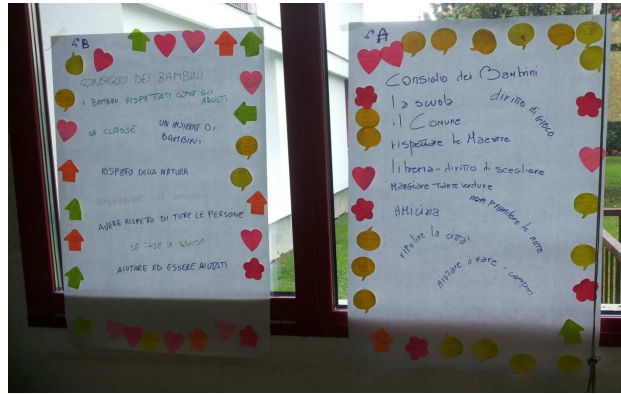 4° B
CONSIGLIO DEI BAMBINI
I BAMBINI RISPETTATI COME GLI ADULTI
LA CLASSE
UN INSIEME DI BAMBINI
RISPETTO DELLA NATURA
AVERE RISPETTO DI TUTTE LE PERSONE
AIUTARE ED ESSERE AIUTATI
4° A
Consiglio dei Bambini
la scuola
diritto di gioco
il Comune
rispettare le Maestre
libertà - diritto di scegliere
Mangiare tante verdure
non prendere le note
AMicizia
ripulire la città
Aiutare a fare i compiti